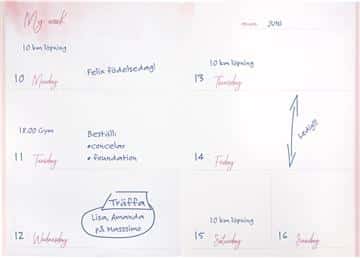 My week
10 km löpning
Felix födelsedag!
10 Monday
18.00 Gym
Beställ:
•concelar
•foundation
11 Tuesday
Träffa
Lisa, Amanda
på Massimo
12 Wednesday
JUNI
10 km löpning
13 Thursday
Ledig!!
14 Friday
10 km löpning
15 Saturday
16 Sunday